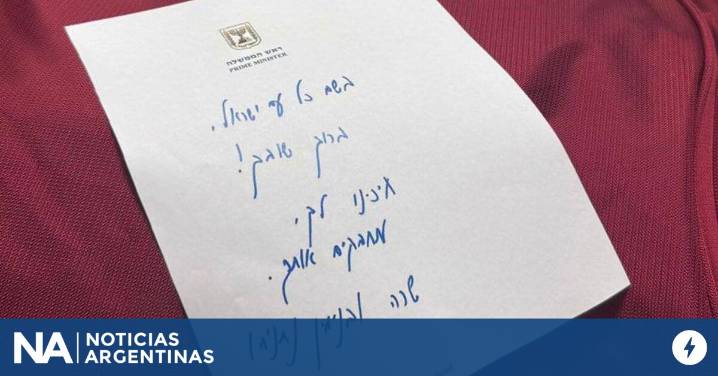 ראש הממשלה
PRIME MINISTER
בשם כל עם ישראל,
ברוך שובך!
חיכינו לך,
מחבקים אותך.
שרה ובנימין נתניהו
NA NOTICIAS
ARGENTINAS